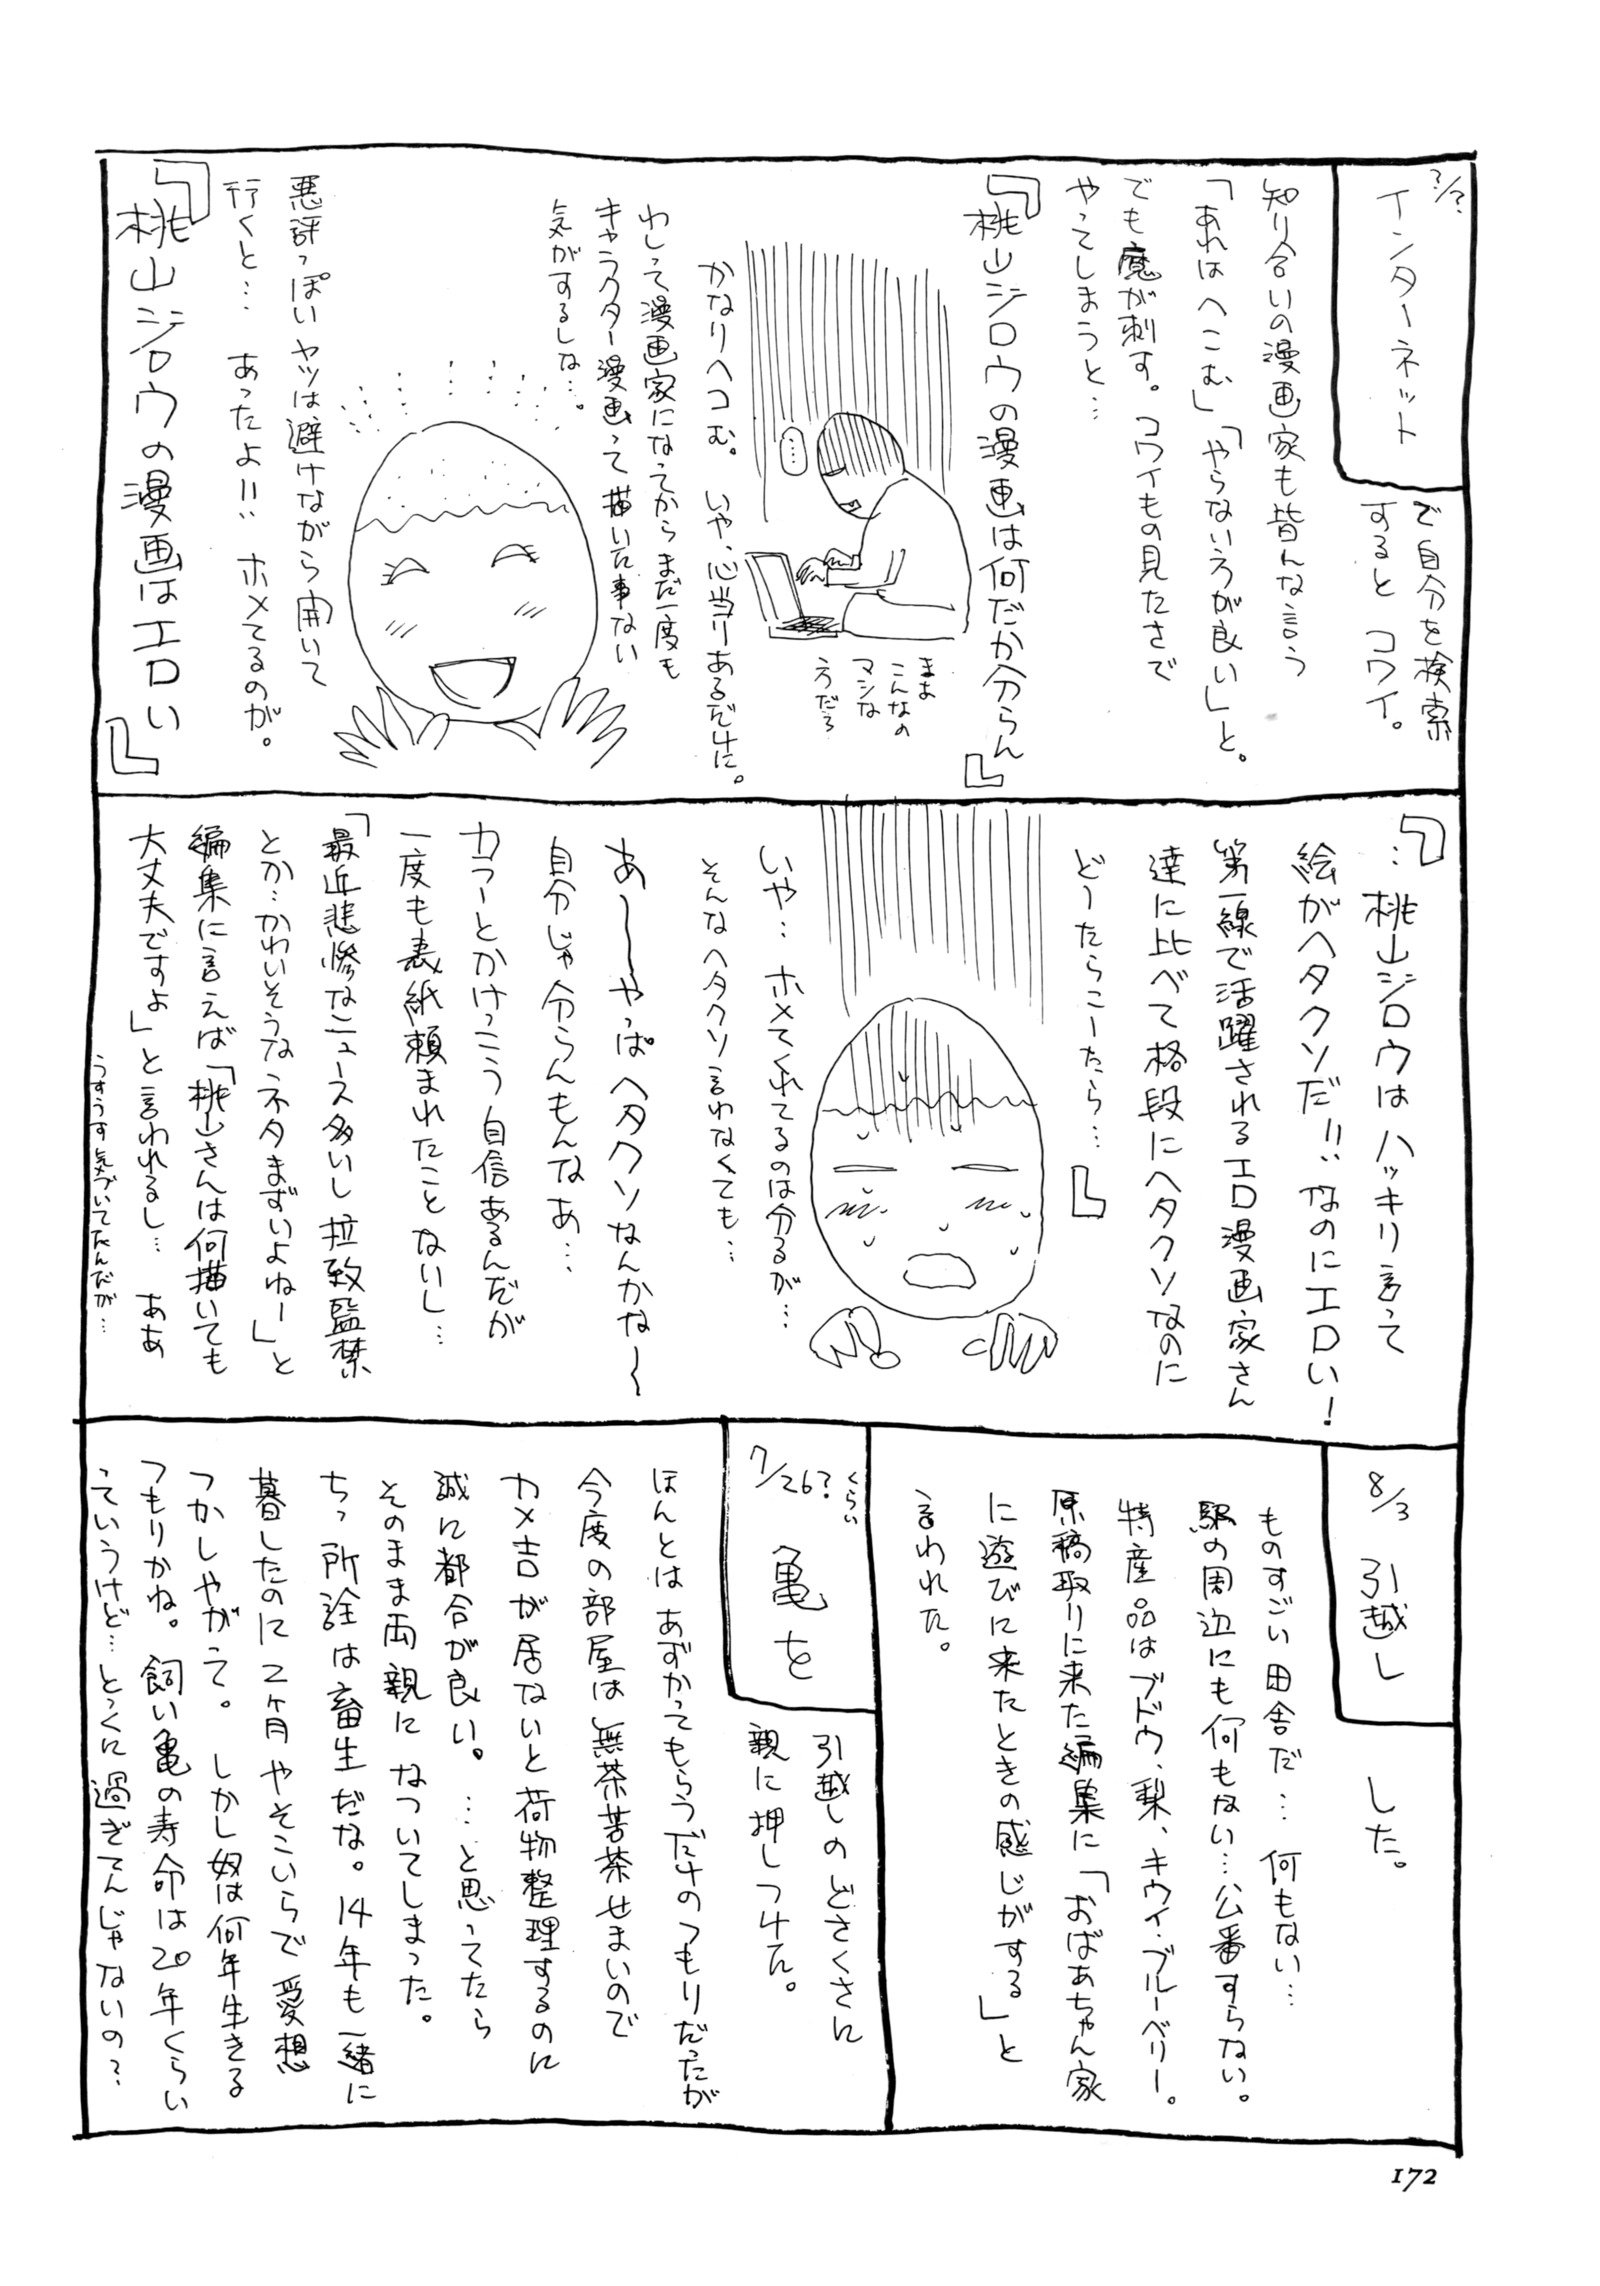 ?/?
インターネット
で自分を検索
すると コワイ。
知り合いの漫画家も皆んな言う
「あれはへこむ」「やらないうが良い」と。
でも魔が刺す。コワイもの見たさで
やってしまうと…
『桃山ジロウの漫画は何だか分らん』
……
まぁ
こんなの
マシな
うだろ
かなりヘコむ。 いや、心当りあるだけに。
わしって漫画家になってからまだ一度も
キャラクター漫画って描いた事ない
気がするしな…。
悪評っぽいヤツは避けながら開いて
行くと… あったよ!! ホメてるのが。
『桃山ジロウの漫画はエロい』
『…桃山ジロウはハッキリ言って
絵がヘタクソだ!! なのにエロい!
第一線で活躍されるエロ漫画家さん
達に比べて格段にヘタクソなのに
どーたらこーたら…』
いや… ホメてくれてるのは分るが…
そんなヘタクソ言わなくても…
あ〜〜やっぱヘタクソなんかな〜
自分じゃ分らんもんなあ…
カラーとかけっこう自信あるんだが
一度も表紙頼まれたことないし…
「最近悲惨なニュース多いし拉致監禁
とか…かわいそうなネタまずいよねー」と
編集に言えば「桃山さんは何描いても
大丈夫ですよ」と言われるし… ああ
うすうす気づいてたんだが…
8/3 引越し
した。
ものすごい田舎だ… 何もない…
駅の周辺にも何もない…公番すらない。
特産品はブドウ、梨、キウイ・ブルーベリー。
原稿取りに来た編集に「おばあちゃん家
に遊びに来たときの感じがする」と
言われた。
7/26?くらい
亀を
引越しのどさくさに
親に押しつけた。
ほんとはあずかってもらうだけのつもりだったが
今度の部屋は無茶苦茶せまいので
カメ吉が居ないと荷物整理するのに
誠に都合が良い。…と思ってたら
そのまま両親になついてしまった。
ちっ所詮は畜生だな。14年も一緒に
暮したのに2ヶ月やそこいらで愛想
つかしやがって。 しかし奴は何年生きる
つもりかね。飼い亀の寿命は20年くらい
っていうけど…とっくに過ぎてんじゃないの?
172